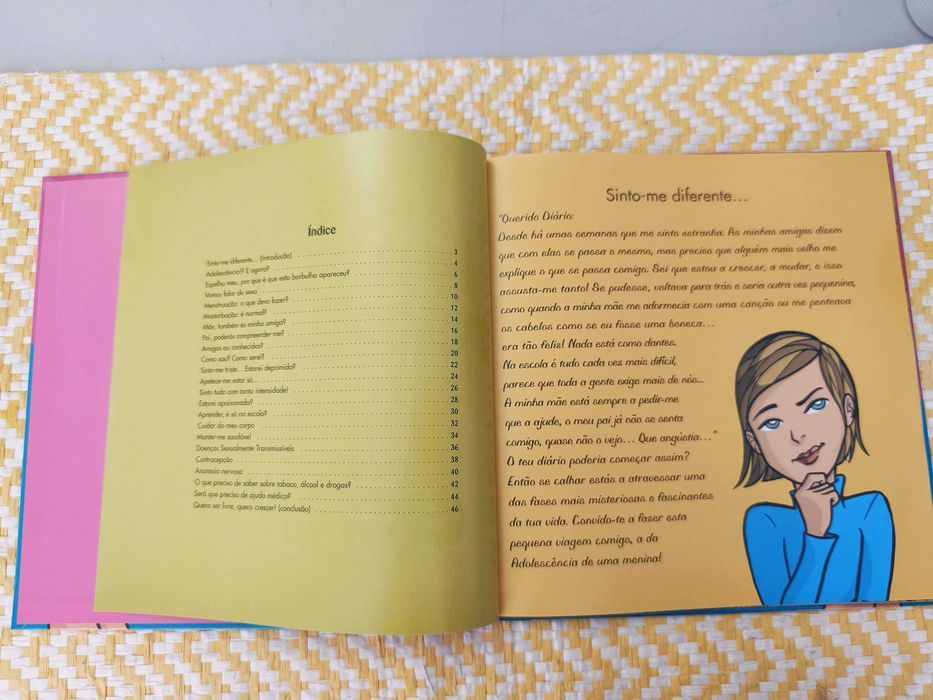 Índice
Sinto-me diferente... (introdução) 3
Adolescência!!! E agora? 4
Espelho meu, por que é que esta borbulha apareceu? 6
Vamos falar de sexo 8
Menstruação: o que devo fazer? 10
Masturbação: é normal? 12
Mãe, também és minha amiga? 14
Pai, poderás compreender-me? 16
Amigos ou conhecidos? 18
Como sou? Como serei? 20
Sinto-me triste... Estarei deprimida? 22
Apetece-me estar só... 24
Sinto tudo com tanta intensidade! 26
Estarei apaixonada? 28
Aprender, é só na escola? 30
Cuidar do meu corpo 32
Manter-me saudável 34
Doenças Sexualmente Transmissíveis 36
Contracepção 38
Anorexia nervosa 40
O que preciso de saber sobre tabaco, álcool e drogas? 42
Será que preciso de ajuda médica? 44
Quero ser livre, quero crescer! (conclusão) 46
Sinto-me diferente...
"Querido Diário:
Desde há umas semanas que me sinto estranha. As minhas amigas dizem
que com elas se passa o mesmo, mas preciso que alguém mais velho me
explique o que se passa comigo. Sei que estou a crescer, a mudar, e isso
assusta-me tanto! Se pudesse, voltava para trás e seria outra vez pequenina,
como quando a minha mãe me adormecia com uma canção ou me penteava
os cabelos como se eu fosse uma boneca...
era tão feliz! Nada está como dantes.
Na escola é tudo cada vez mais difícil,
parece que toda a gente exige mais de nós...
A minha mãe está sempre a pedir-me
que a ajude, o meu pai já não se senta
comigo, quase não o vejo... Que angústia..."
O teu diário poderia começar assim?
Então se calhar estás a atravessar uma
das fases mais misteriosas e fascinantes
da tua vida. Convido-te a fazer esta
pequena viagem comigo, a da
Adolescência de uma menina!